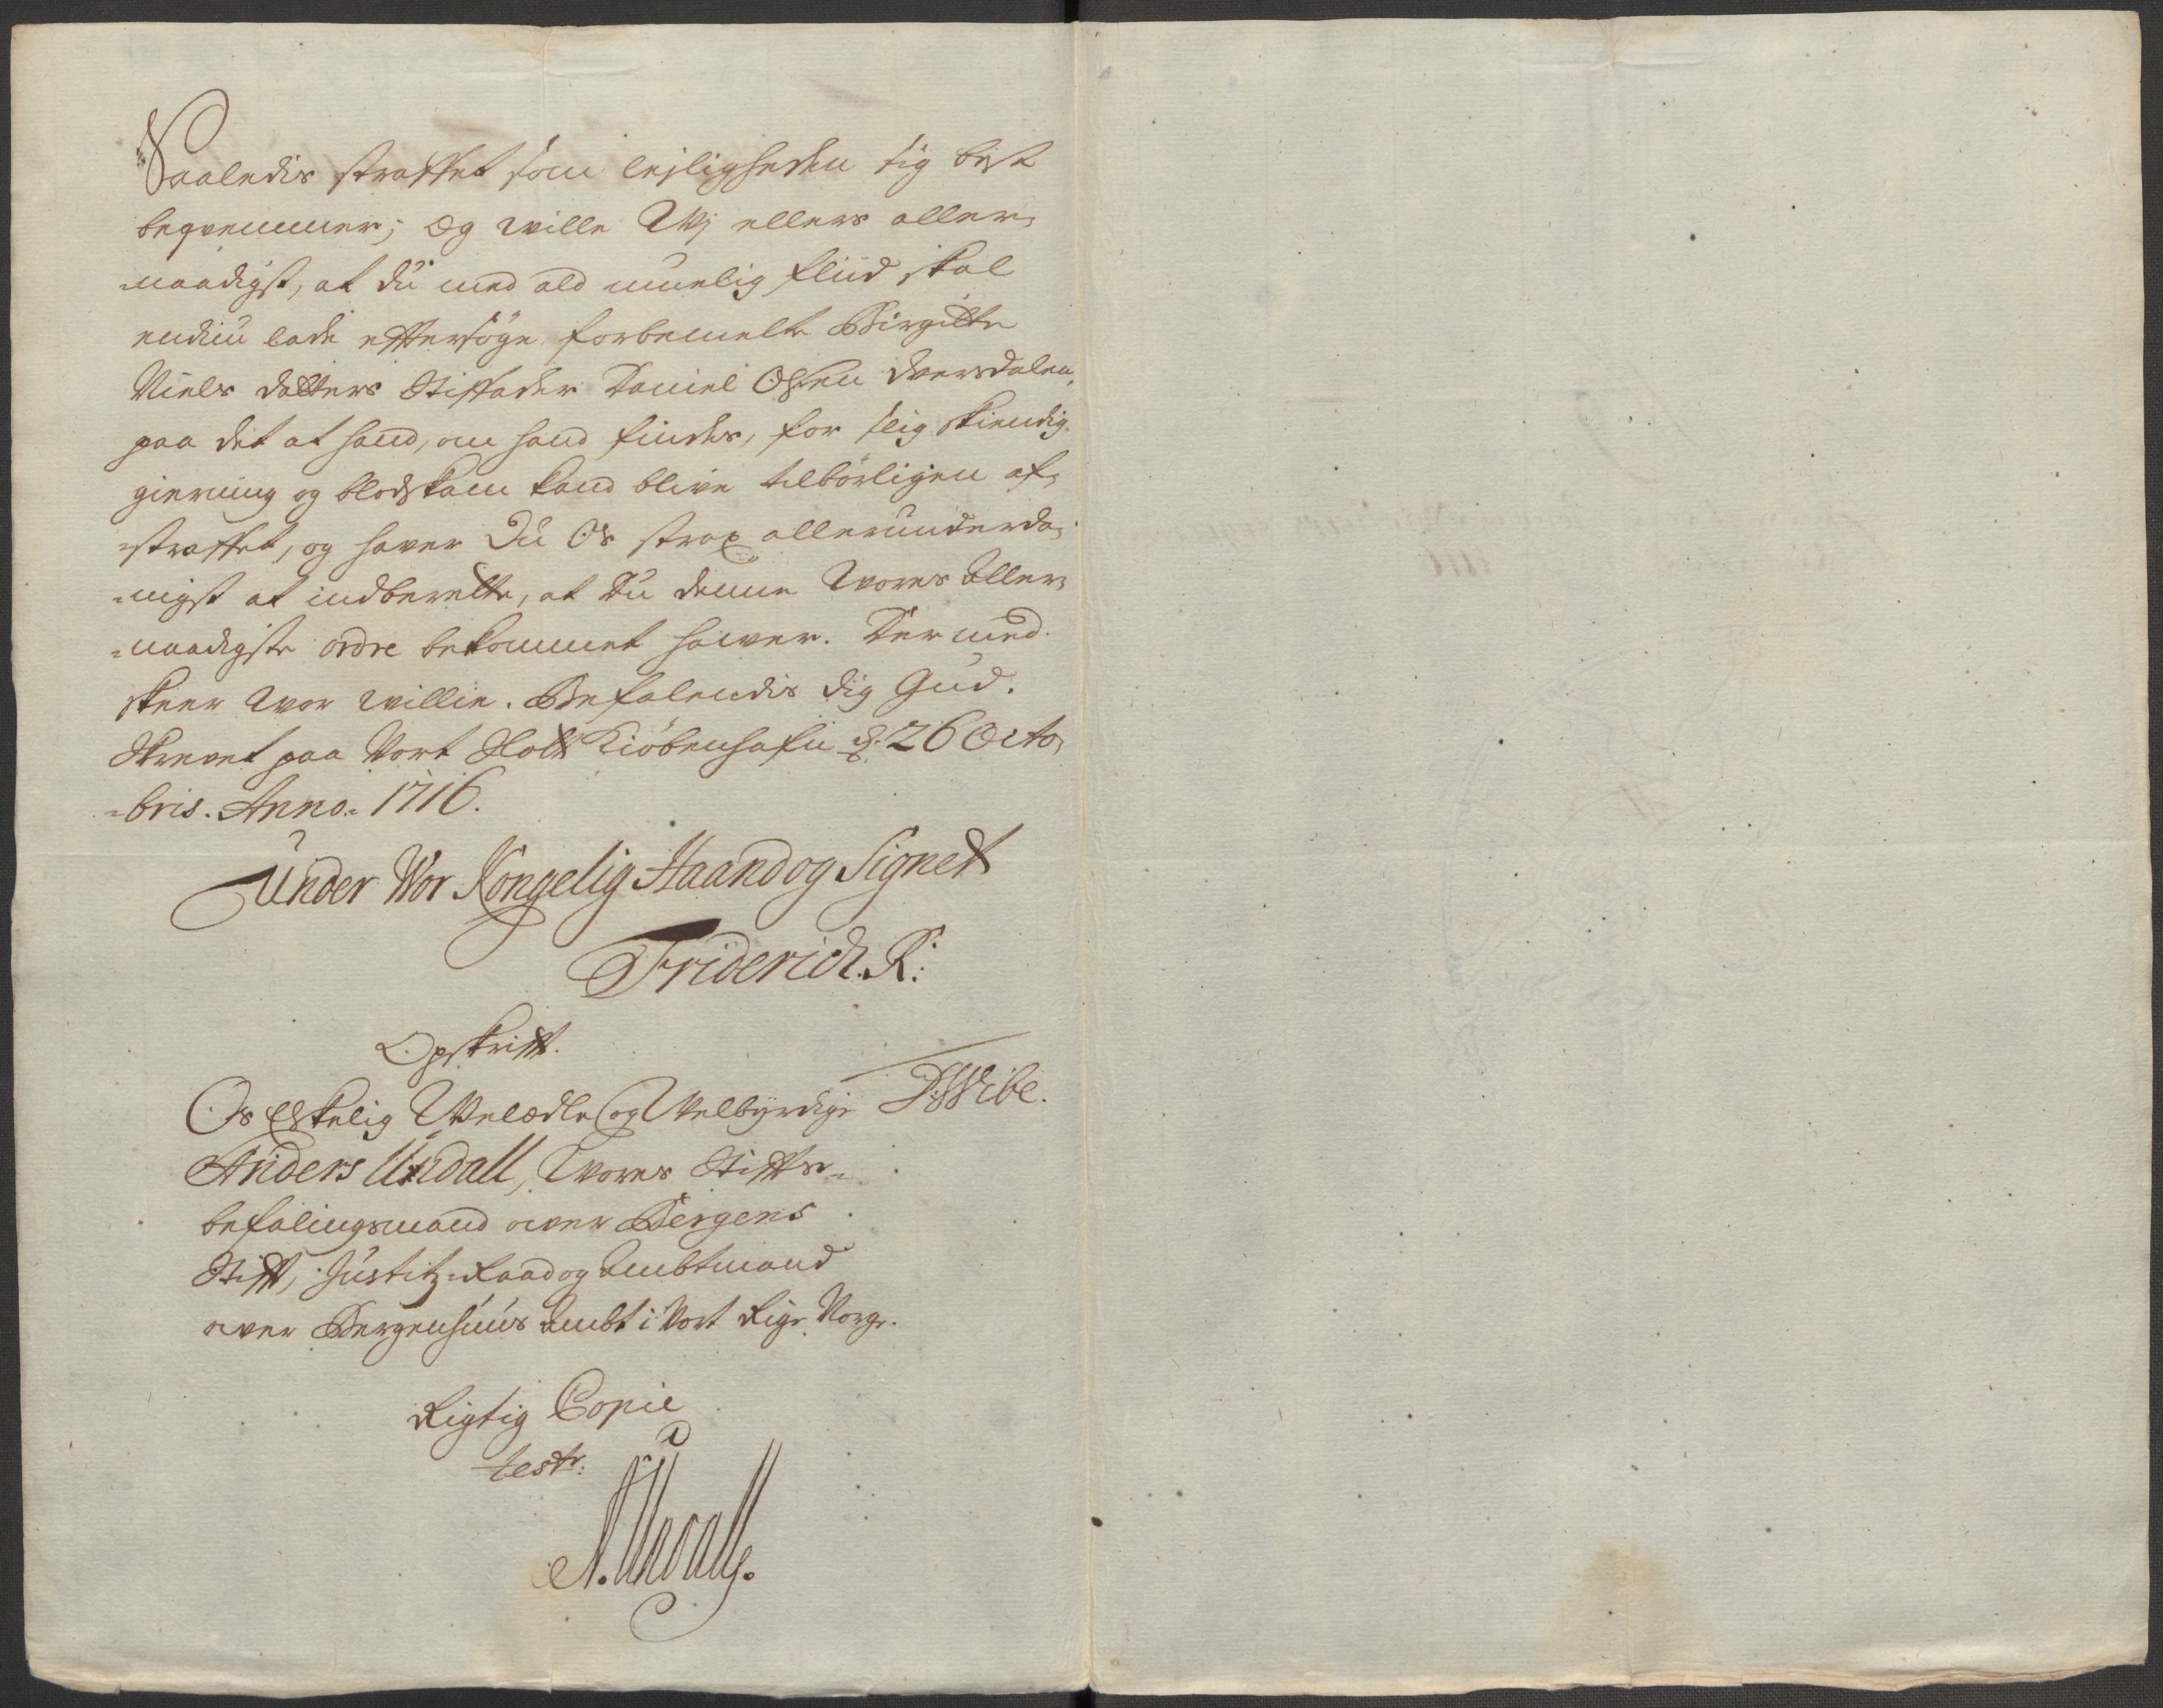 Saaledis straffet som lejligheden sig best
beqvemmer; Og wille Wj ellers aller,
-naadigst, at du med ald muelig fliid skal
endnu lade efftersöge forbemelte Birgitte
Niels datters Stiffader Daniel Olsen dversdalen,
paa det at hand, om hand findes, for slig skiendig
gierning og blodskam kand blive tilbörligen af,
-straffet, og haver Du Os strax allerunderda,
-nigst at indberette, at Du denne Wores Aller,
-naadigste ordre bekommet hawer. Der med
skeer Wor willie. Befalendis dig Gud.
Skrevet paa Vort Slott Kiöbenhafn d: 26 Octo,
-bris. Anno. 1716.
Under Wor Kongelig Haand og Signet
Friderich. R:
Opskrifft.
Os Elskelig Welædle og Welbyrdige
D: Wibe.
Anders Undall, Wores Stiffts-
befalingsmand ower Bergens
Stifft, Justitz-Raad og Ambtmand
ower Bergenhuus Ambt i Vort Rige Norge.
Rigtig Copie
test:
A. Undall.